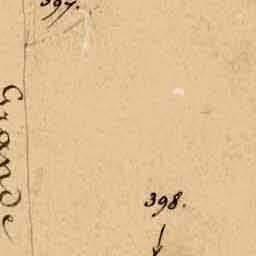 397.
Grande
398.